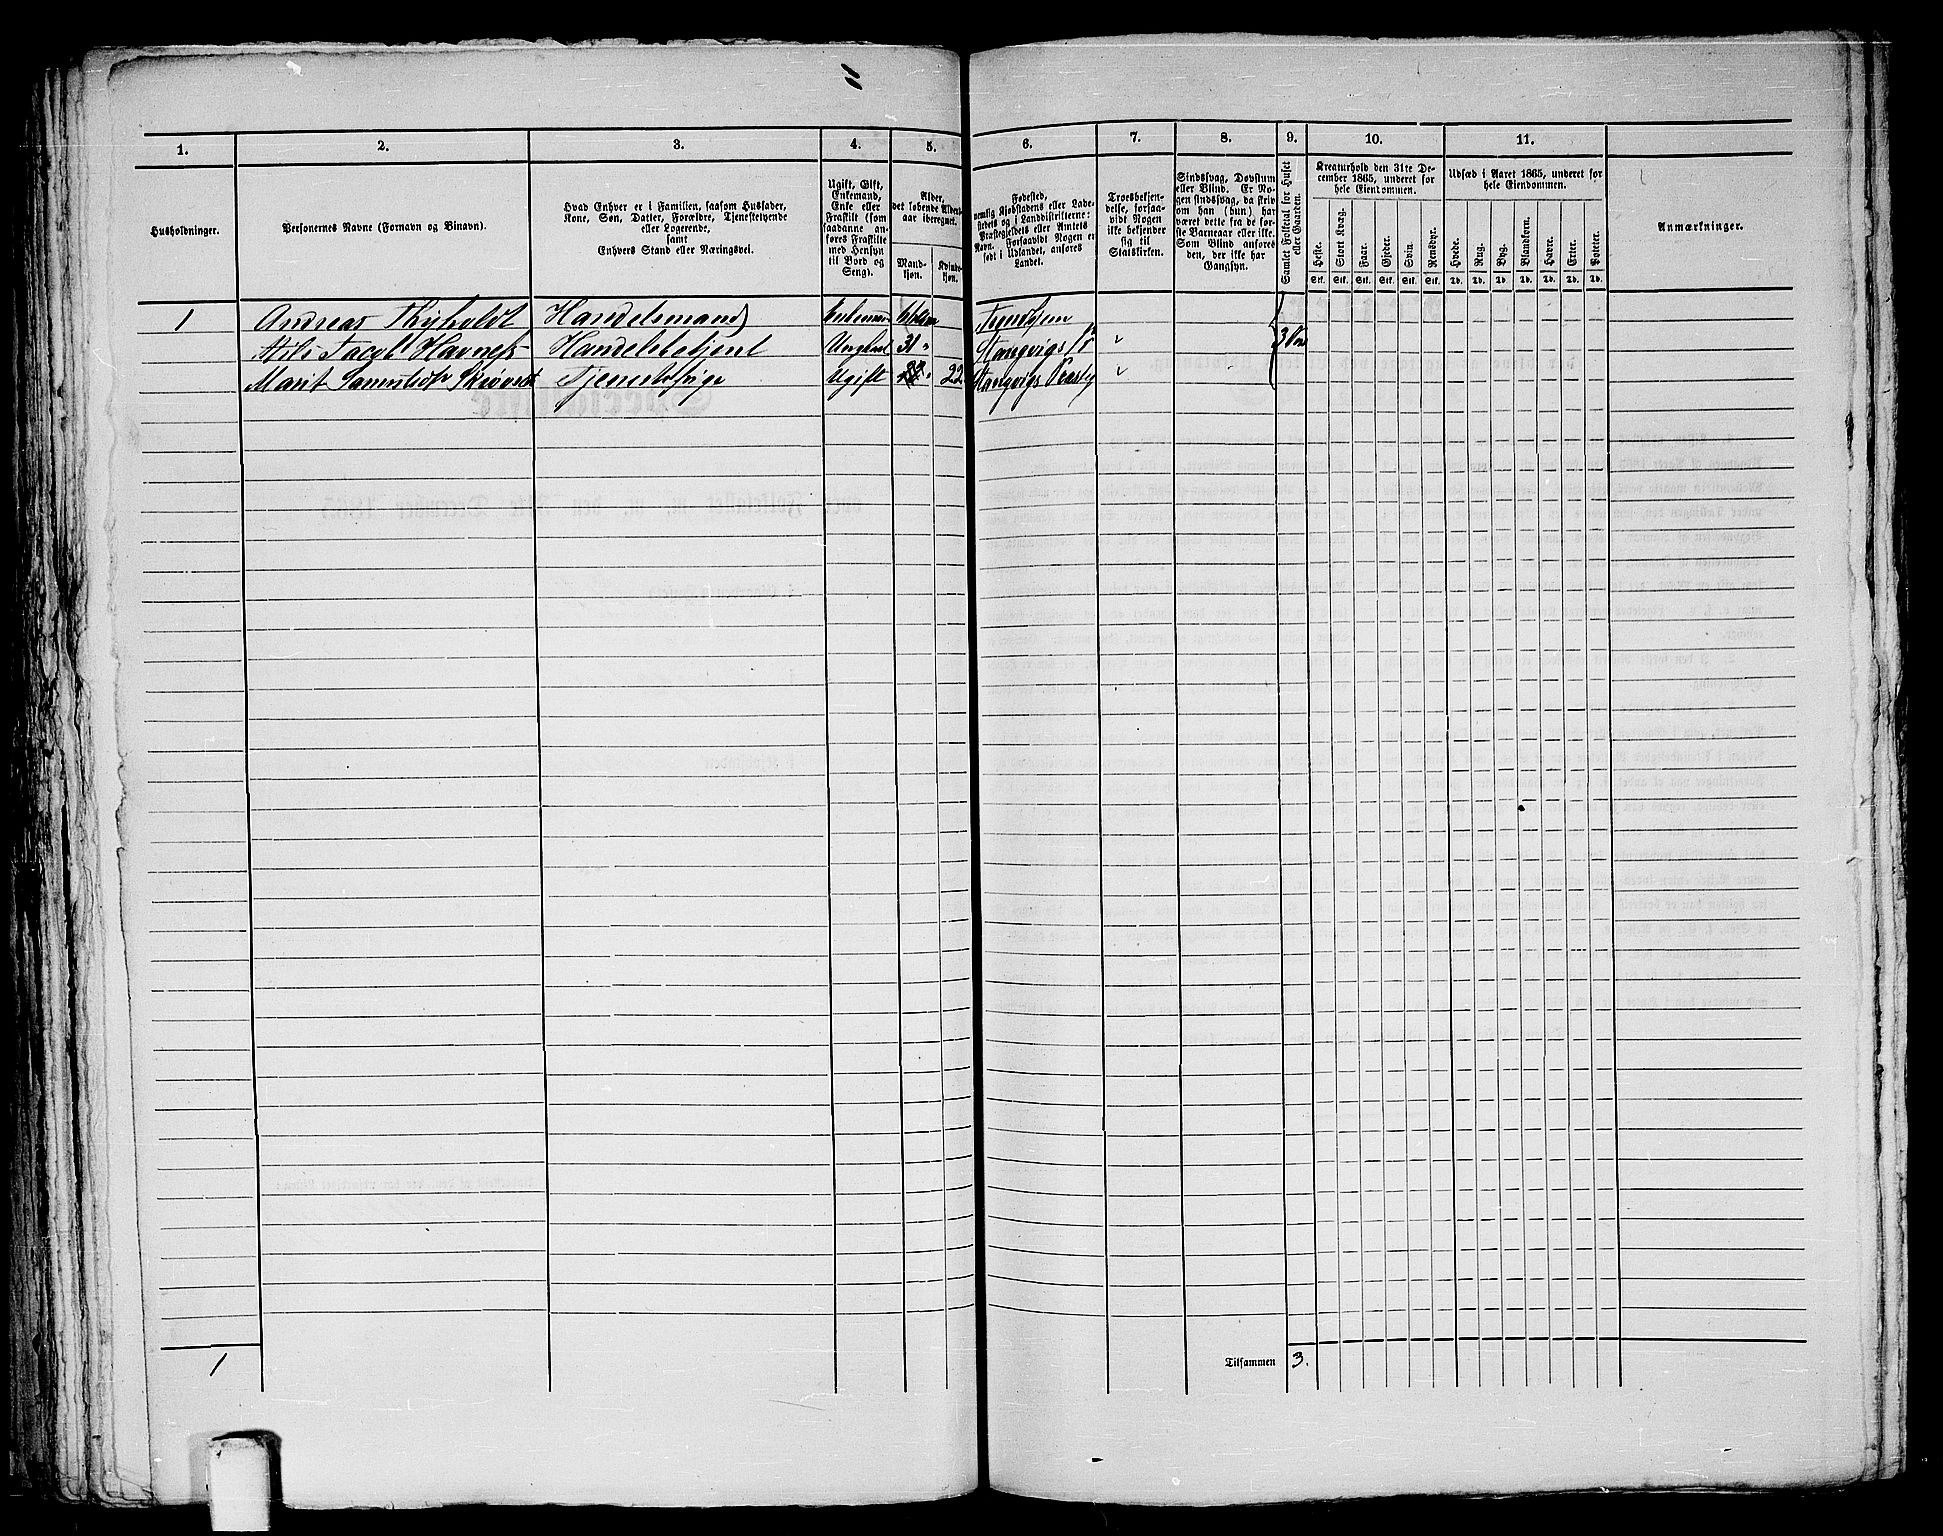 1. 2. 3. 4. 5. 6. 7. 8. 9. 10. 11.
Husholdninger.
Personernes Navne (Fornavn og Binavn).
Hvad Enhver er i Familien, saasom Husfader,
Kone, Søn, Datter, Forældre, Tjenestetyende
eller Logerende,
samt
Enhvers Stand eller Næringsvei.
Ugift, Gift,
Enkemand,
Enke eller
Fraskilt (som
saadanne an-
føres Fraskilte
med Hensyn
til Bord og
Seng).
Alder,
det løbende Alders-
aar iberegnet.
Mand-
kjøn.
Kvinde-
kjøn.
Fødested,
nemlig Kjøbstadens eller Lade-
stedets og i Landdistrikterne:
Præstegjeldets eller Amtets
Navn. Forsaavidt Nogen er
født i Udlandet, anføres
Landet.
Troesbekjen-
delse, forsaa-
vidt Nogen
ikke bekjender
sig til
Statskirken.
Sindssvag, Døvstum
eller Blind. Er No-
gen sindssvag, da skriv
om han (hun) har
været dette fra de før-
ste Barneaar eller ikke.
Som Blind anføres
den, der ikke har
Gangsyn.
Samlet Folketal for Huset
eller Gaarden.
Kreaturhold den 31te De-
cember 1865, underet for
hele Eiendommen.
Heste. Stort Kvæg. Faar. Gjeder. Svin. Rensdyr.
Stk. Stk. Stk. Stk. Stk. Stk.
Udsæd i Aaret 1865, underet for
hele Eiendommen.
Hvede. Rug. Byg. Blandkorn. Havre. Erter. Poteter.
Td. Td. Td. Td. Td. Td. Td.
Anmærkninger.
1 Andreas Thyholdt Handelsmand
Jacob Havnes Handelsbetjent Ungkarl 31 " Stangvigs " 3
Marit Skrøvset Tjenestepige Ugift " 22 Stangvigs "
1 Tilsammen 3.